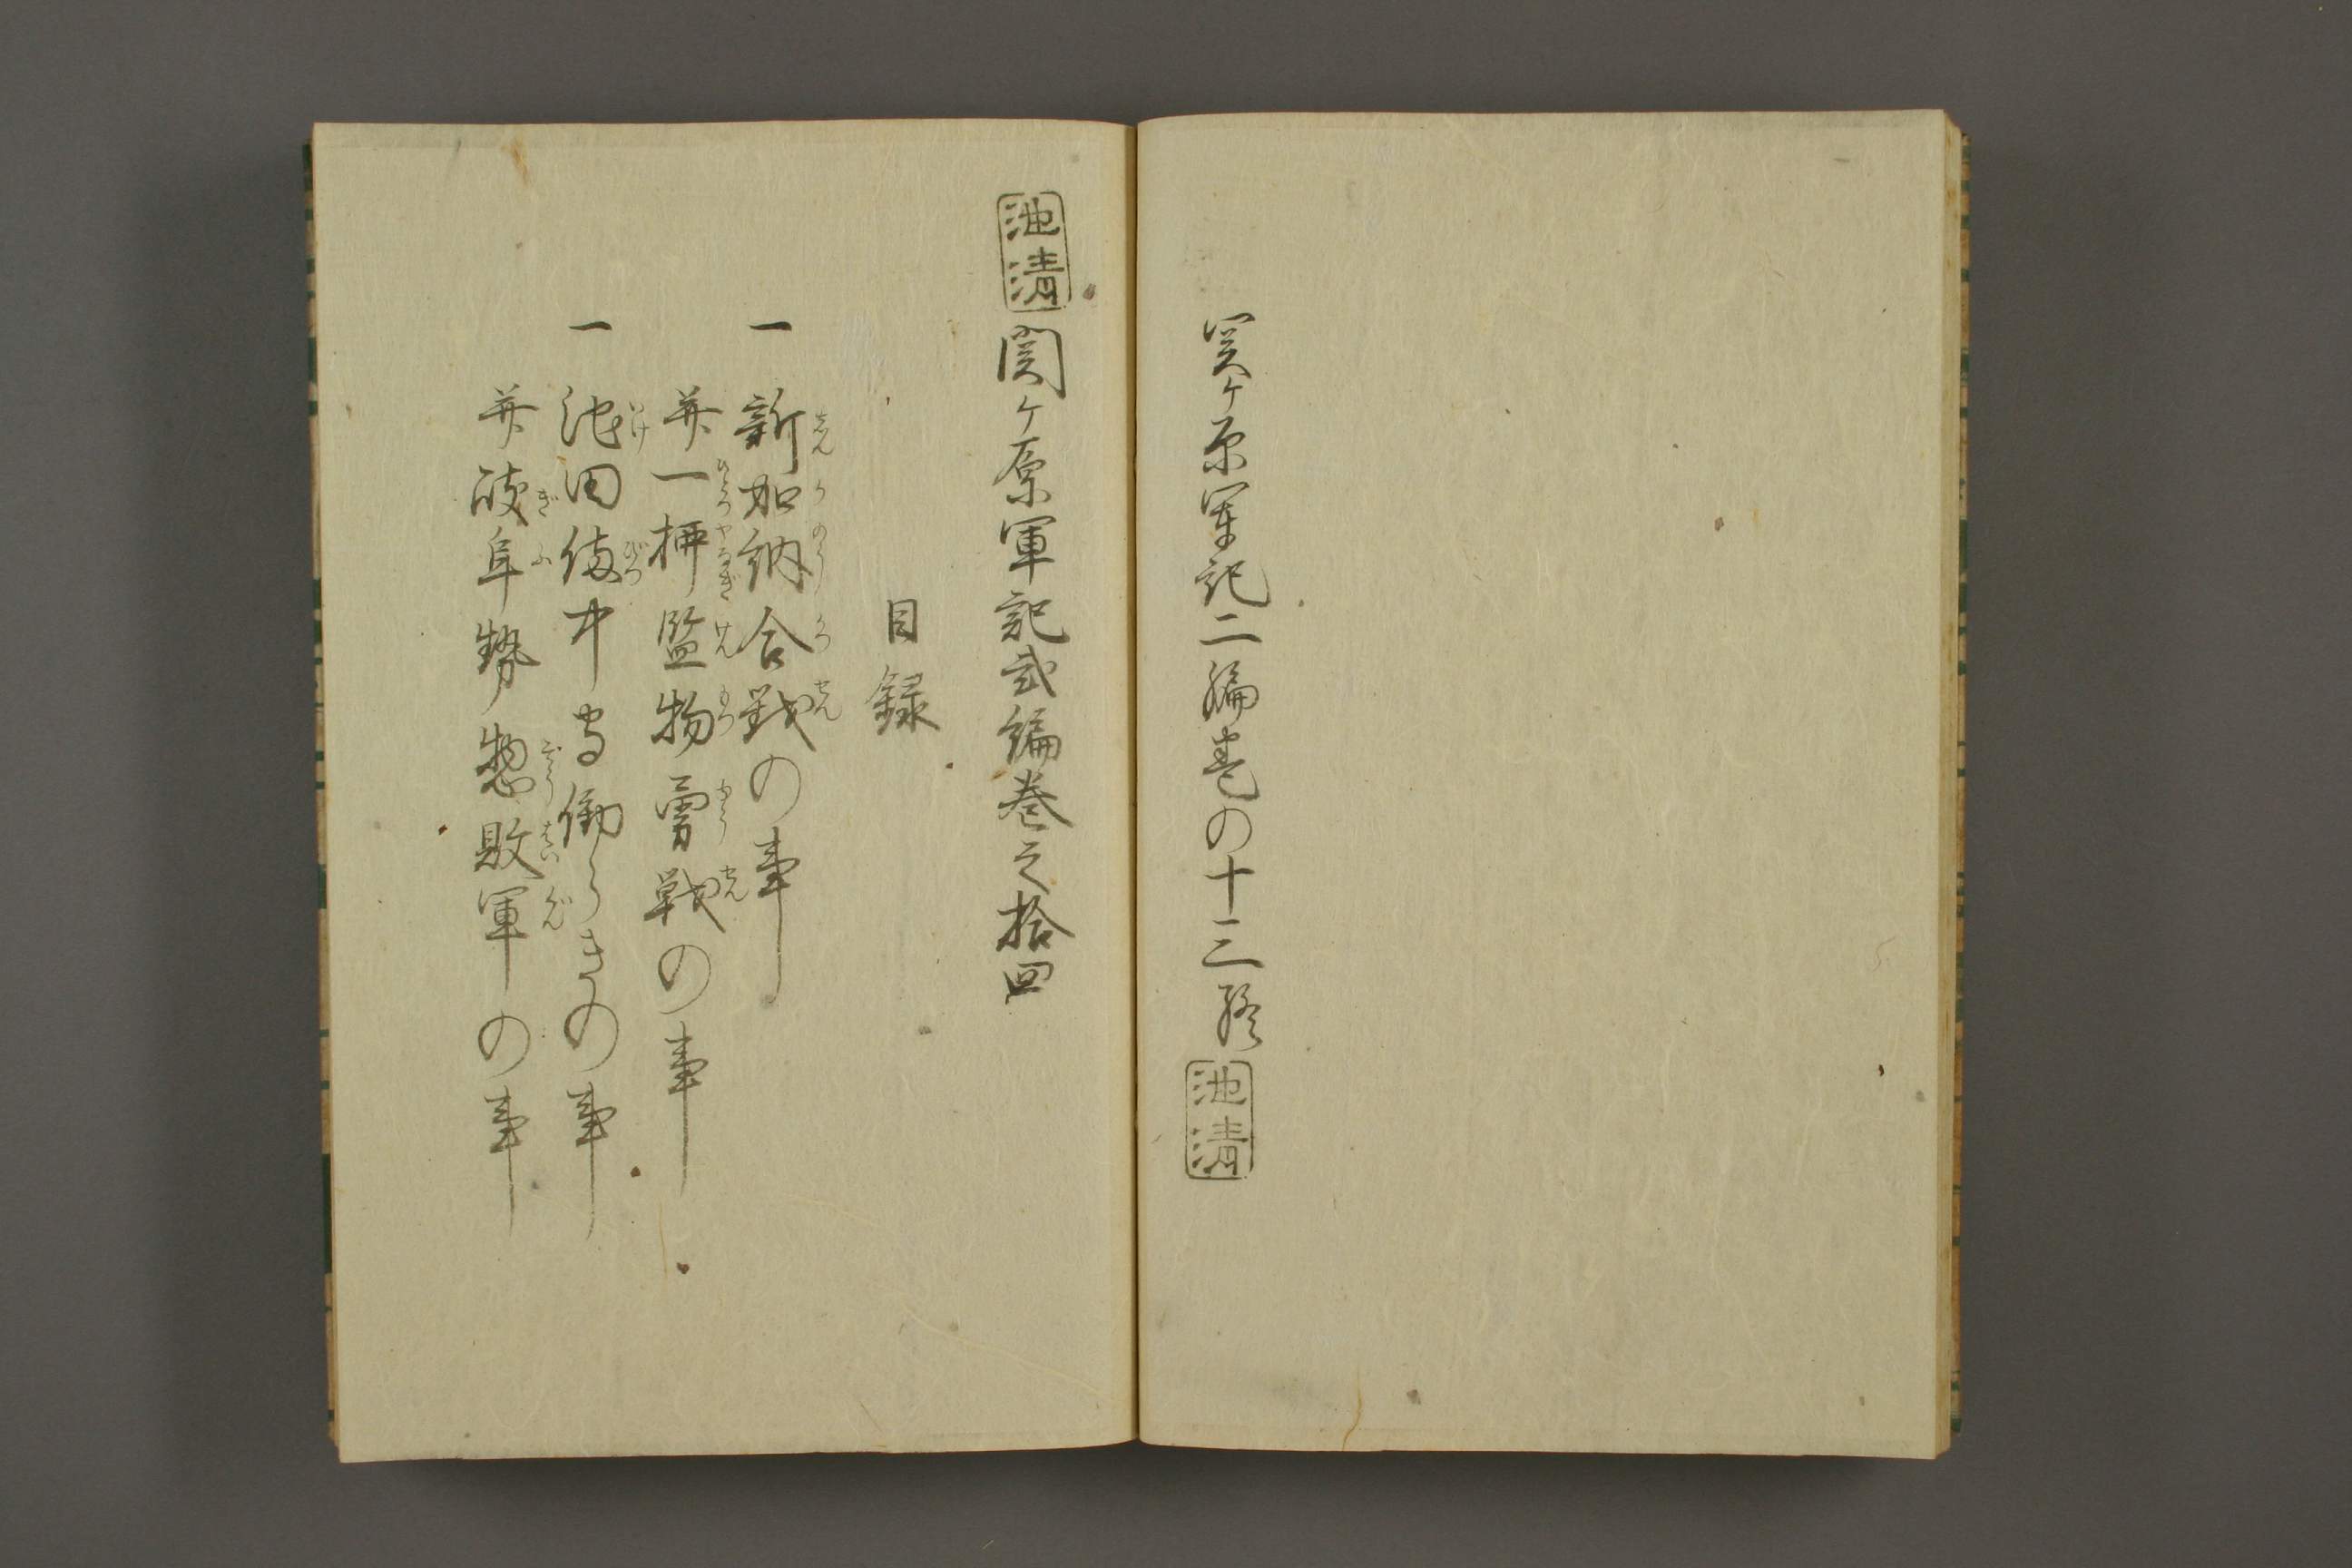 関ヶ原軍記二編巻の十三終
池清
池清
関ヶ原軍記弐編巻之拾四
目録
一 新加納合戦の事
并一柳監物勇戦の事
一 池田備中守働らきの事
并岐阜勢惣敗軍の事